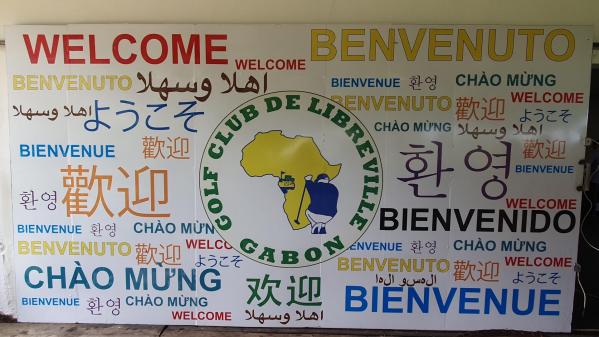 WELCOME
WELCOME
BENVENUTO
BENVENUTO
اهلا وسهلا
BIENVENUE
환영
CHÀO MỪNG
اهلا وسهلا
ようこそ
BENVENUTO
歡迎
WELCOME
ようこそ
歡迎
CHÀO MỪNG
اهلا وسهلا
BIENVENUE
GOLF CLUB DE LIBREVILLE
GABON
환영
BENVENUTO
BIENVENUE
환영
歡迎
歡迎
WELCOME
BIENVENUE
환영
CHÀO MỪN
BIENVENIDO
BENVENUTO
歡迎
WELCO
ようこそ
BIENVENUE
환영
CHÀO MỪNG
WELCOME
CHÀO MỪNG
欢迎
BENVENUTO
歡迎
ようこそ
BIENVENUE
환영
CHÀO MỪNG
WELCOME
اهلا وسهلا
BIENVENUE